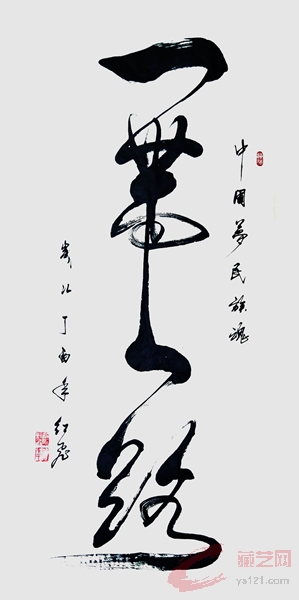 中国梦民族魂
一带一路
岁次丁酉年 红飞
藏艺网
ys121.com